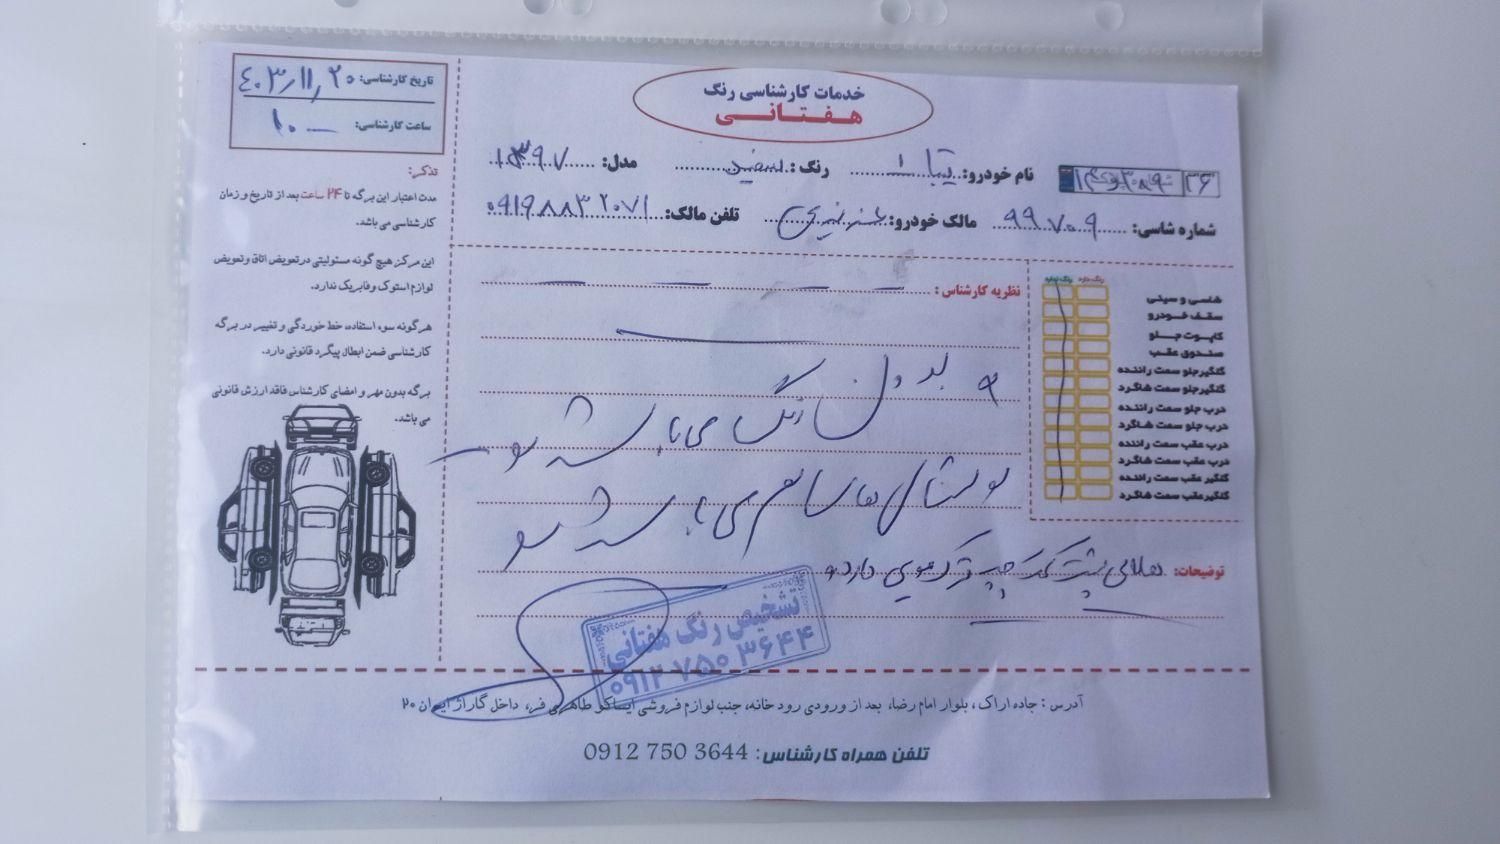 خدمات کارشناسی رنگ
هفتانی
تاریخ کارشناسی: ۴۰۳/۱۱/۲۰
ساعت کارشناسی: ۱۰
نام خودرو: تیبا ۱ رنگ: سفید مدل: ۱۳۹۷
شماره شاسی: ۹۹۷۰۰۹ مالک خودرو: تلفن مالک: ۰۹۱۹۸۸۳۲۰۷۱
تذکر:
مدت اعتبار این برگه تا ۲۴ ساعت بعد از تاریخ و زمان
کارشناسی می باشد.
این مرکز هیچ گونه مسئولیتی در تعویض اتاق و تعویض
لوازم استوک و فابریک ندارد.
هرگونه سوء استفاده، خط خوردگی و تغییر در برگه
کارشناسی ضمن ابطال پیگرد قانونی دارد.
برگه بدون مهر و امضای کارشناس فاقد ارزش قانونی
می باشد.
رنگ دارد رنگ ندارد
شاسی و سینی
سقف خودرو
کاپوت جلو
صندوق عقب
گلگیر جلو سمت راننده
گلگیر جلو سمت شاگرد
درب جلو سمت راننده
درب جلو سمت شاگرد
درب عقب سمت راننده
درب عقب سمت شاگرد
گلگیر عقب سمت راننده
گلگیر عقب سمت شاگرد
نظریه کارشناس:
بدون رنگ می باشد
پولیشی ها سالم می باشد
توضیحات: هلالی پشت گلگیر چپ ترک مویی دارد
تشخیص رنگ هفتانی
۰۹۱۲ ۷۵۰ ۳۶۴۴
آدرس: جاده اراک، بلوار امام رضا، بعد از ورودی رود خانه، جنب لوازم فروشی ایساکو طاهری فر، داخل گاراژ ایران ۲۰
تلفن همراه کارشناس: 0912 750 3644